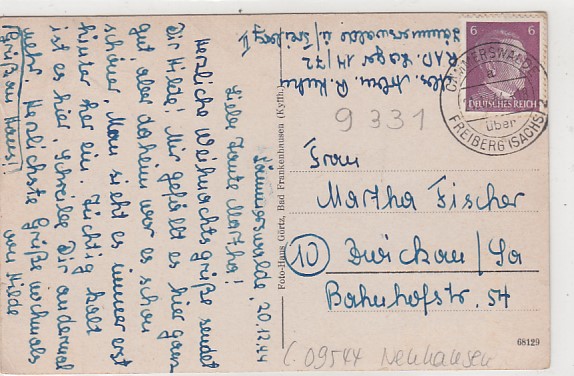 Cämmerswalde, 20.12.44
Liebe Tante Martha!
Herzliche Weihnachtsgrüße sendet
Dir Hilde! Mir gefällt es hier ganz
gut aber daheim war es schon
schöner. Man sieht es immer erst
hinter her ein. Tüchtig kalt
ist es hier. Schreibe Dir andermal
mehr. Herzlichste Grüße nochmals
von Hilde
Gruß an Hans!!
R.A.D. Lager 14/72
Cämmerswalde ü/Freiberg II
6 6
DEUTSCHES REICH
CÄMMERSWALDE
über
FREIBERG (SACHS)
9331
Frau
Martha Fischer
10 Zwickau/Sa
Bahnhofstr. 54
Foto-Haus Görtz, Bad Frankenhausen (Kyffh.)
68129
09544 Neuhausen